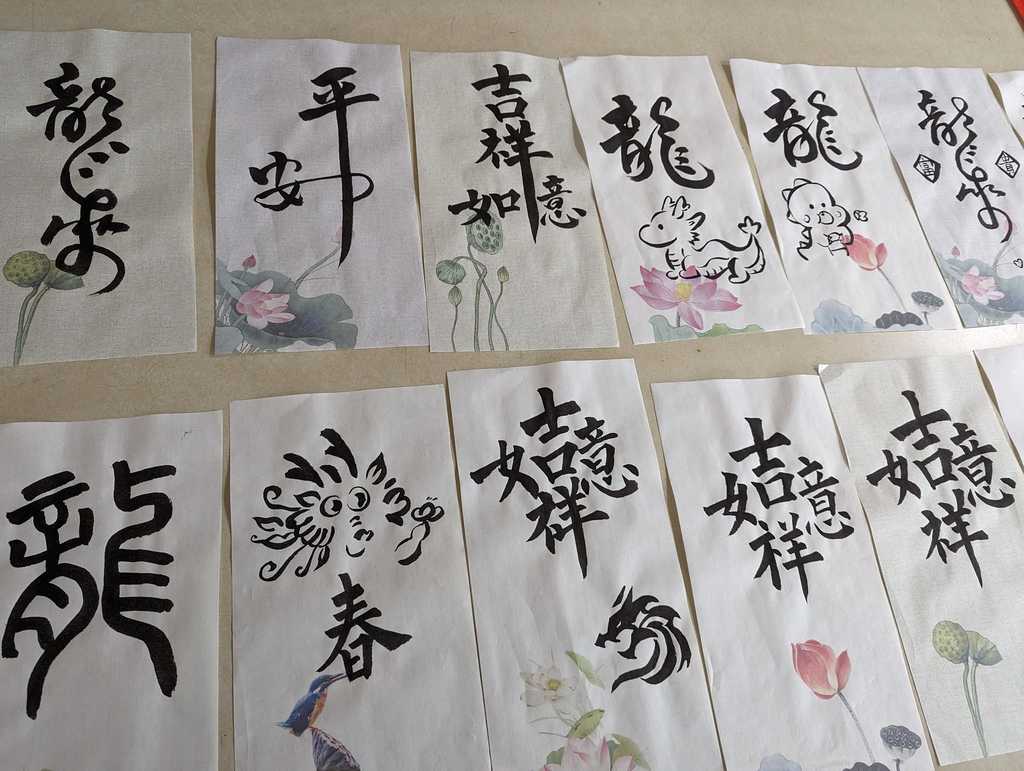 龍來
平安
吉祥如意
龍
龍
龍來
富 貴
龍
春
吉祥如意
吉祥如意
吉祥如意